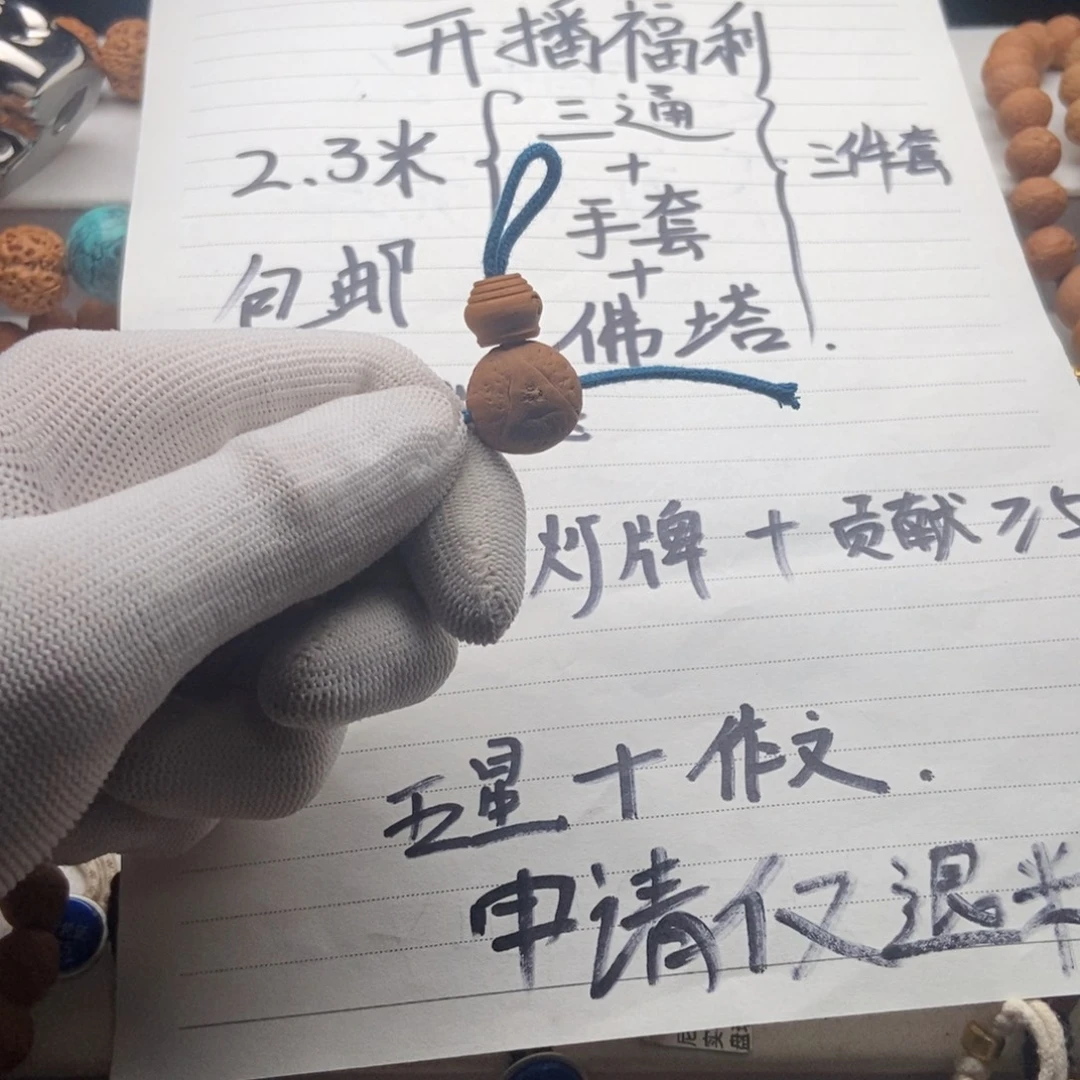 开播福利
2.3米 三通 三件套
+
手套
+
包邮 佛塔.
灯牌 + 贡献 7/5
五星 + 作文.
申请仅退米